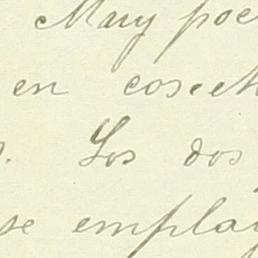 Mary poe
en cosech
s. Los dos
se emplay